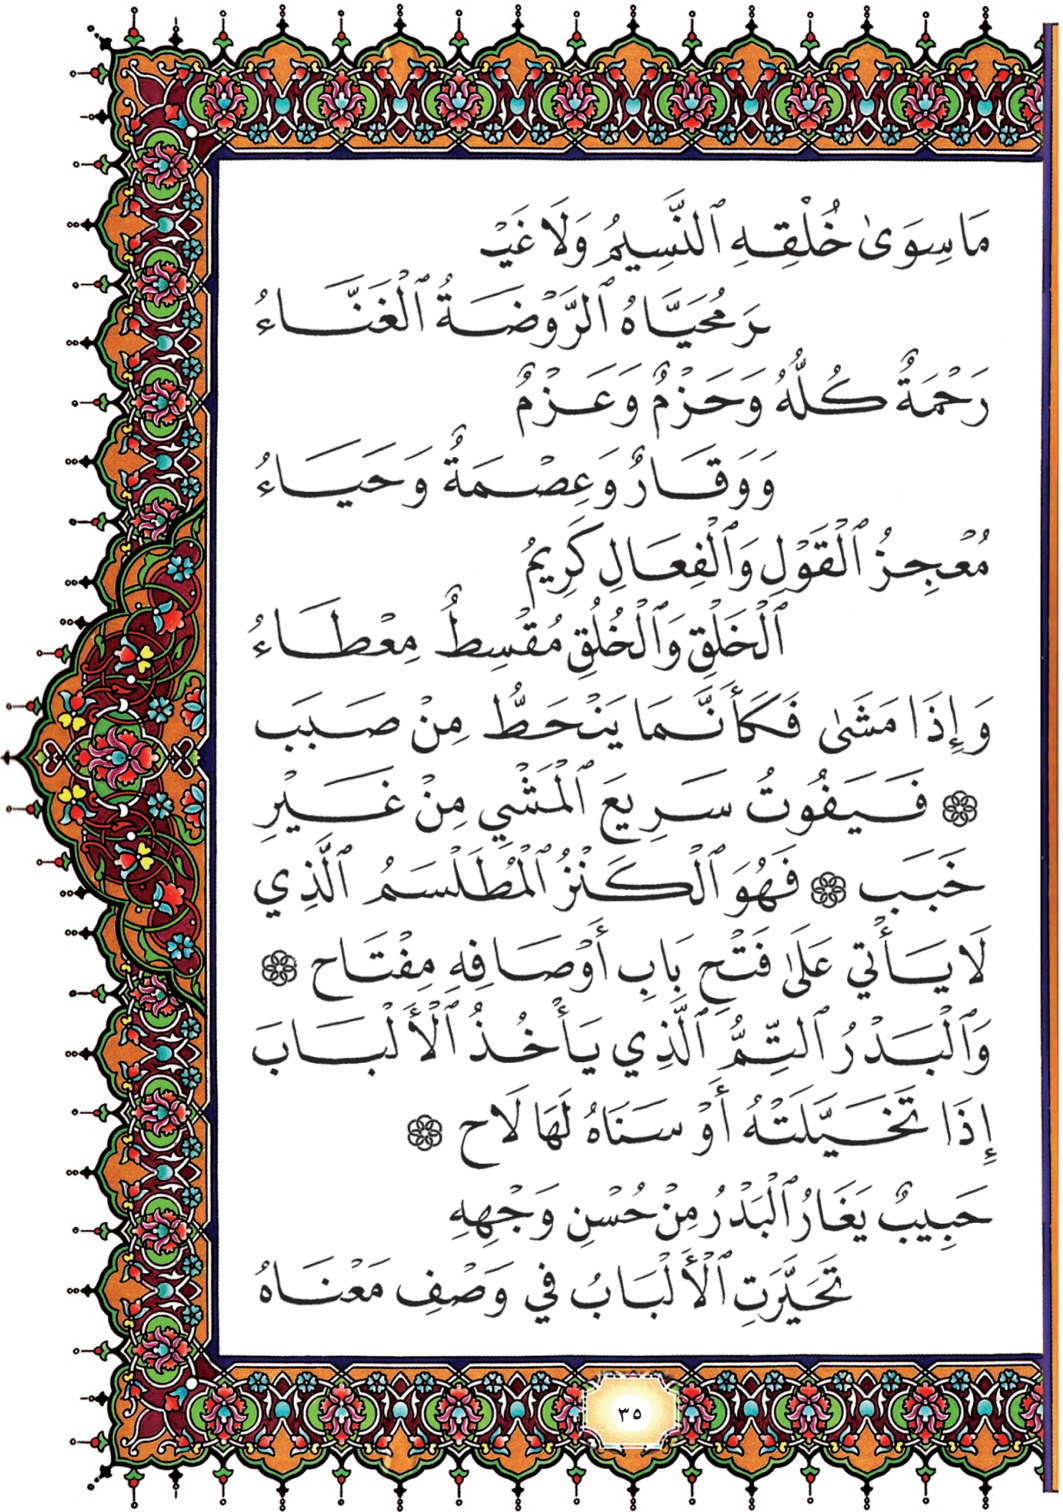 مَا سِوَىٰ خُلْقِهِ ٱلنَّسِيمُ وَلَا غَيْـ
ـرَ مُحَيَّاهُ ٱلرَّوْضَةُ ٱلْغَنَّاءُ
رَحْمَةٌ كُلُّهُ وَحَزْمٌ وَعَزْمٌ
وَوَقَارٌ وَعِصْمَةٌ وَحَيَاءُ
مُعْجِزُ ٱلْقَوْلِ وَٱلْفِعَالِ كَرِيمُ
ٱلْخَلْقِ وَٱلْخُلُقِ مُقْسِطٌ مِعْطَاءُ
وَإِذَا مَشَىٰ فَكَأَنَّمَا يَنْحَطُّ مِنْ صَبَبَ
۞ فَيَفُوتُ سَرِيعَ ٱلْمَشْيِ مِنْ غَيْرِ
خَبَبَ ۞ فَهُوَ ٱلْكَنْزُ ٱلْمُطَلْسَمُ ٱلَّذِي
لَا يَأْتِي عَلَىٰ فَتْحِ بَابِ أَوْصَافِهِ مِفْتَاح ۞
وَٱلْبَدْرُ ٱلتِّمُّ ٱلَّذِي يَأْخُذُ ٱلْأَلْبَابَ
إِذَا تَخَيَّلَتْهُ أَوْ سَنَاهُ لَهَا لَاح ۞
حَبِيبٌ يَغَارُ ٱلْبَدْرُ مِنْ حُسْنِ وَجْهِهِ
تَحَيَّرَتِ ٱلْأَلْبَابُ فِي وَصْفِ مَعْنَاهُ
٣٥